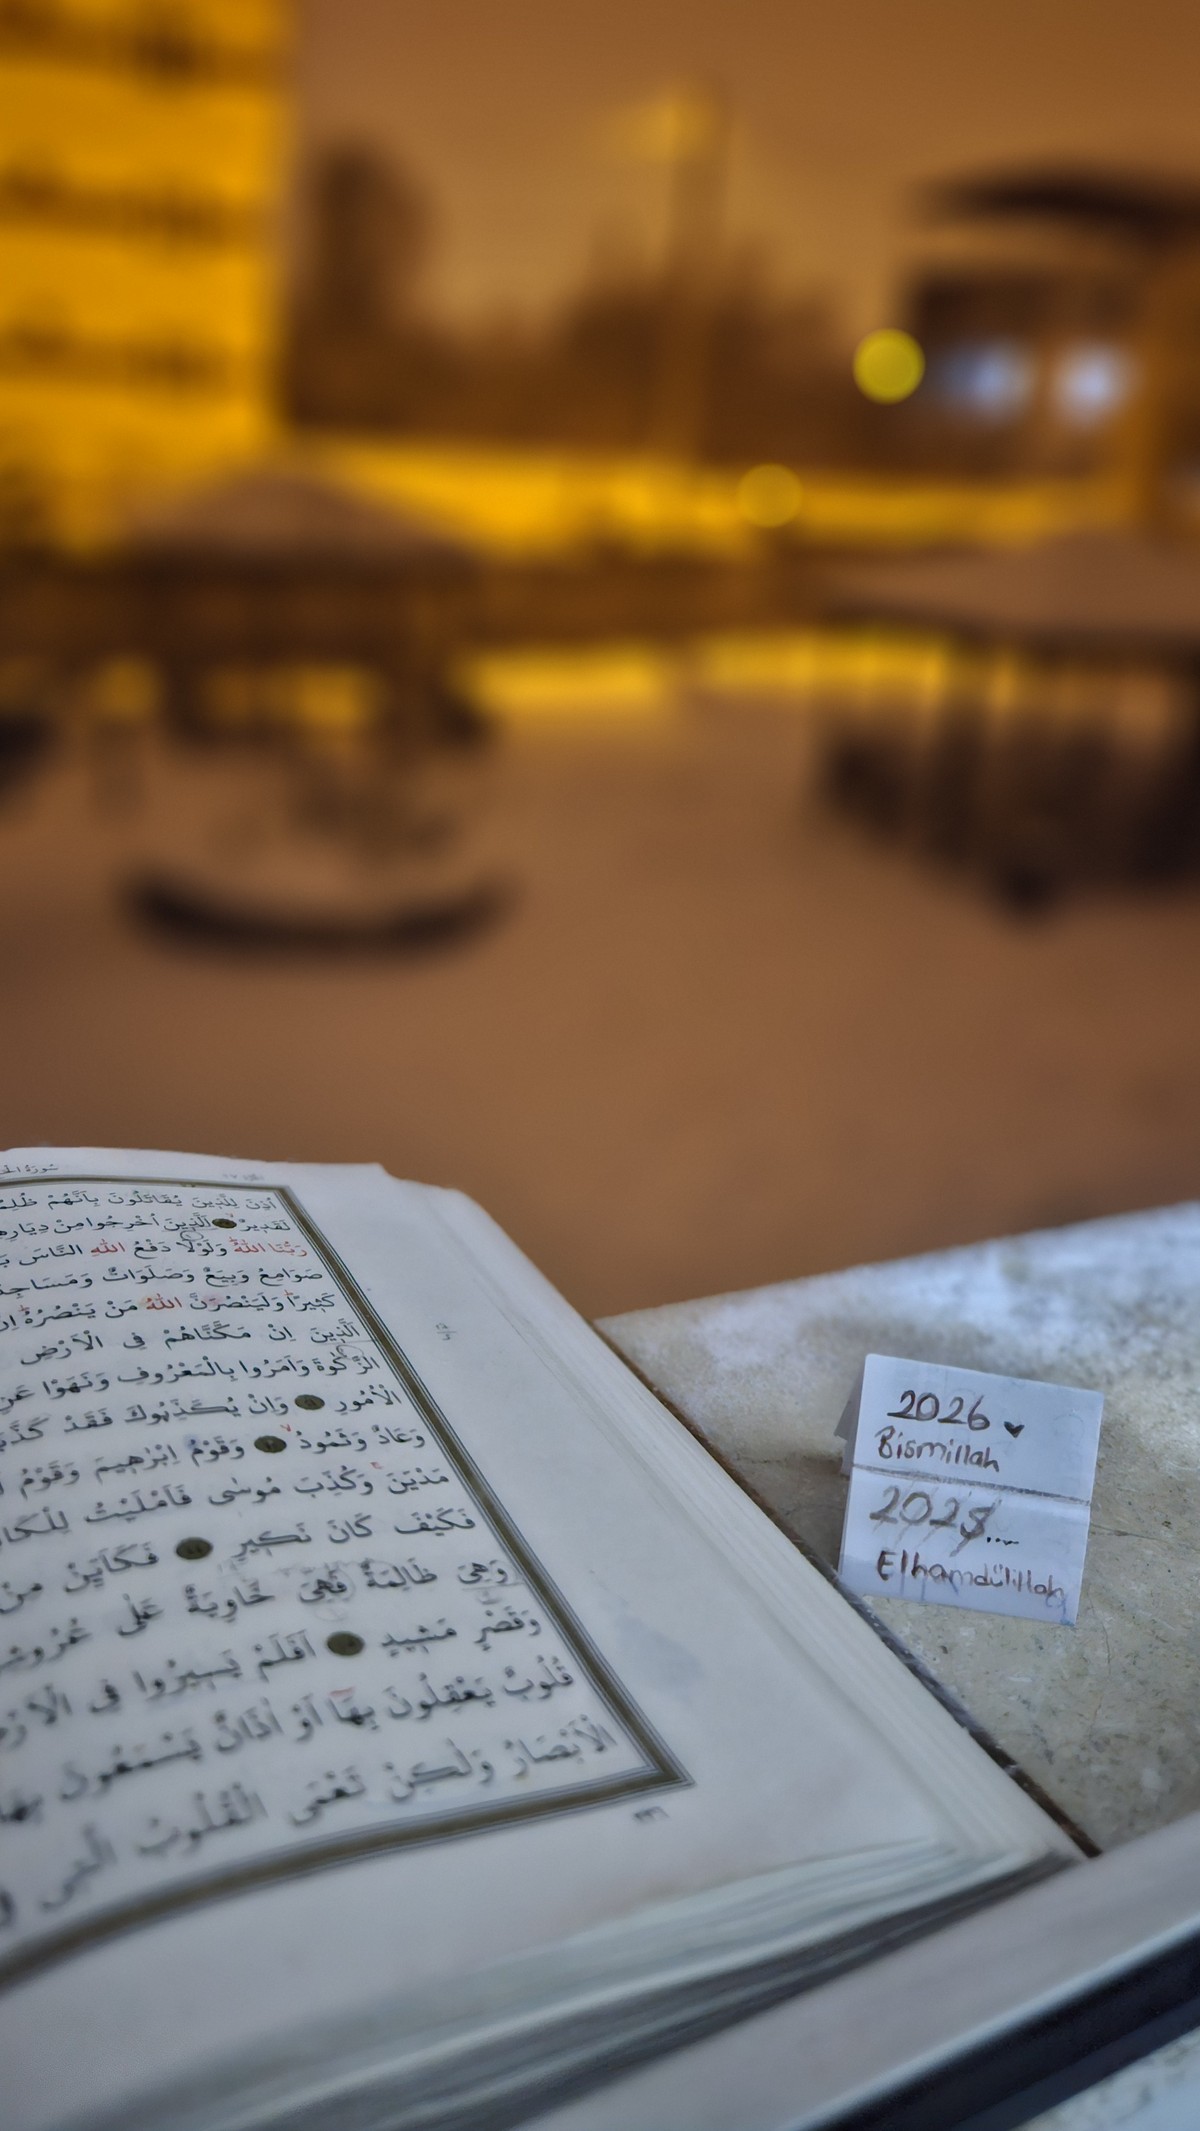 سُورَةُ الْحَجِّ
اُذِنَ لِلَّذِينَ يُقَاتَلُونَ بِاَنَّهُمْ ظُلِمُوا
لَقَدِيرٌ ۙ اَلَّذِينَ اُخْرِجُوا مِنْ دِيَارِهِ
رَبُّنَا اللّٰهُ وَلَوْلَا دَفْعُ اللّٰهِ النَّاسَ
صَوَامِعُ وَبِيَعٌ وَصَلَوَاتٌ وَمَسَاجِدُ
كَثِيرًا وَلَيَنْصُرَنَّ اللّٰهُ مَنْ يَنْصُرُهُ اِنَّ
اَلَّذِينَ اِنْ مَكَّنَّاهُمْ فِى الْاَرْضِ
الزَّكٰوةَ وَاَمَرُوا بِالْمَعْرُوفِ وَنَهَوْا عَنِ
الْاُمُورِ وَاِنْ يُكَذِّبُوكَ فَقَدْ كَذَّبَ
وَعَادٌ وَثَمُودُ ۙ وَقَوْمُ اِبْرٰهِيمَ وَقَوْمُ
مَدْيَنَ وَكُذِّبَ مُوسٰى فَاَمْلَيْتُ لِلْكَا
فَكَيْفَ كَانَ نَكِيرِ فَكَاَيِّنْ مِنْ
وَهِىَ ظَالِمَةٌ فَهِىَ خَاوِيَةٌ عَلٰى عُرُوشِ
وَقَصْرٍ مَشِيدٍ اَفَلَمْ يَسِيرُوا فِى الْاَرْضِ
قُلُوبٌ يَعْقِلُونَ بِهَا اَوْ اٰذَانٌ يَسْمَعُونَ بِهَا
الْاَبْصَارُ وَلٰكِنْ تَعْمَى الْقُلُوبُ الَّتِى فِى
2026
Bismillah
2025....
Elhamdülillah